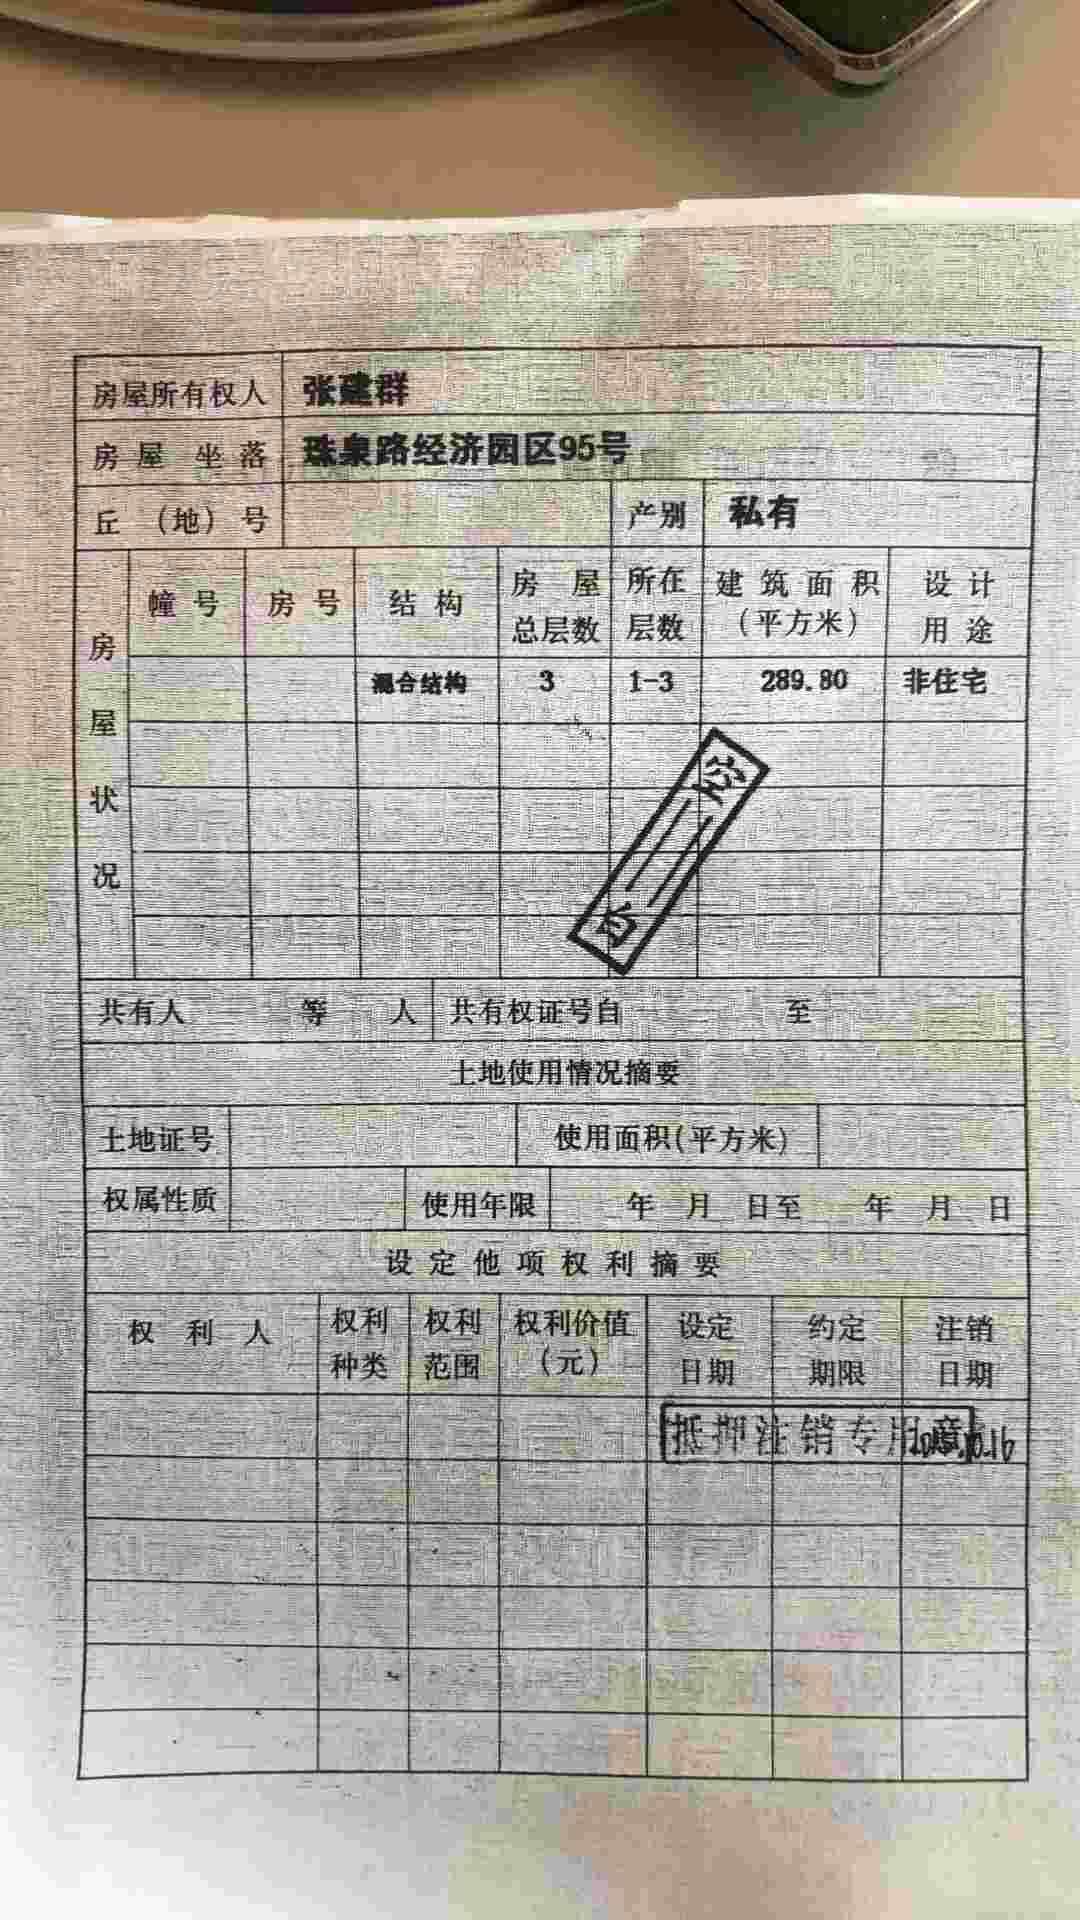 房屋所有权人 张建群
房屋坐落 珠泉路经济园区95号
丘（地）号 产别 私有
房屋状况
幢号 房号 结构 房屋总层数 所在层数 建筑面积（平方米） 设计用途
混合结构 3 1-3 289.80 非住宅
空白
共有人 等 人 共有权证号自 至
土地使用情况摘要
土地证号 使用面积(平方米)
权属性质 使用年限 年 月 日至 年 月 日
设定他项权利摘要
权利人 权利种类 权利范围 权利价值（元） 设定日期 约定期限 注销日期
抵押注销专用章